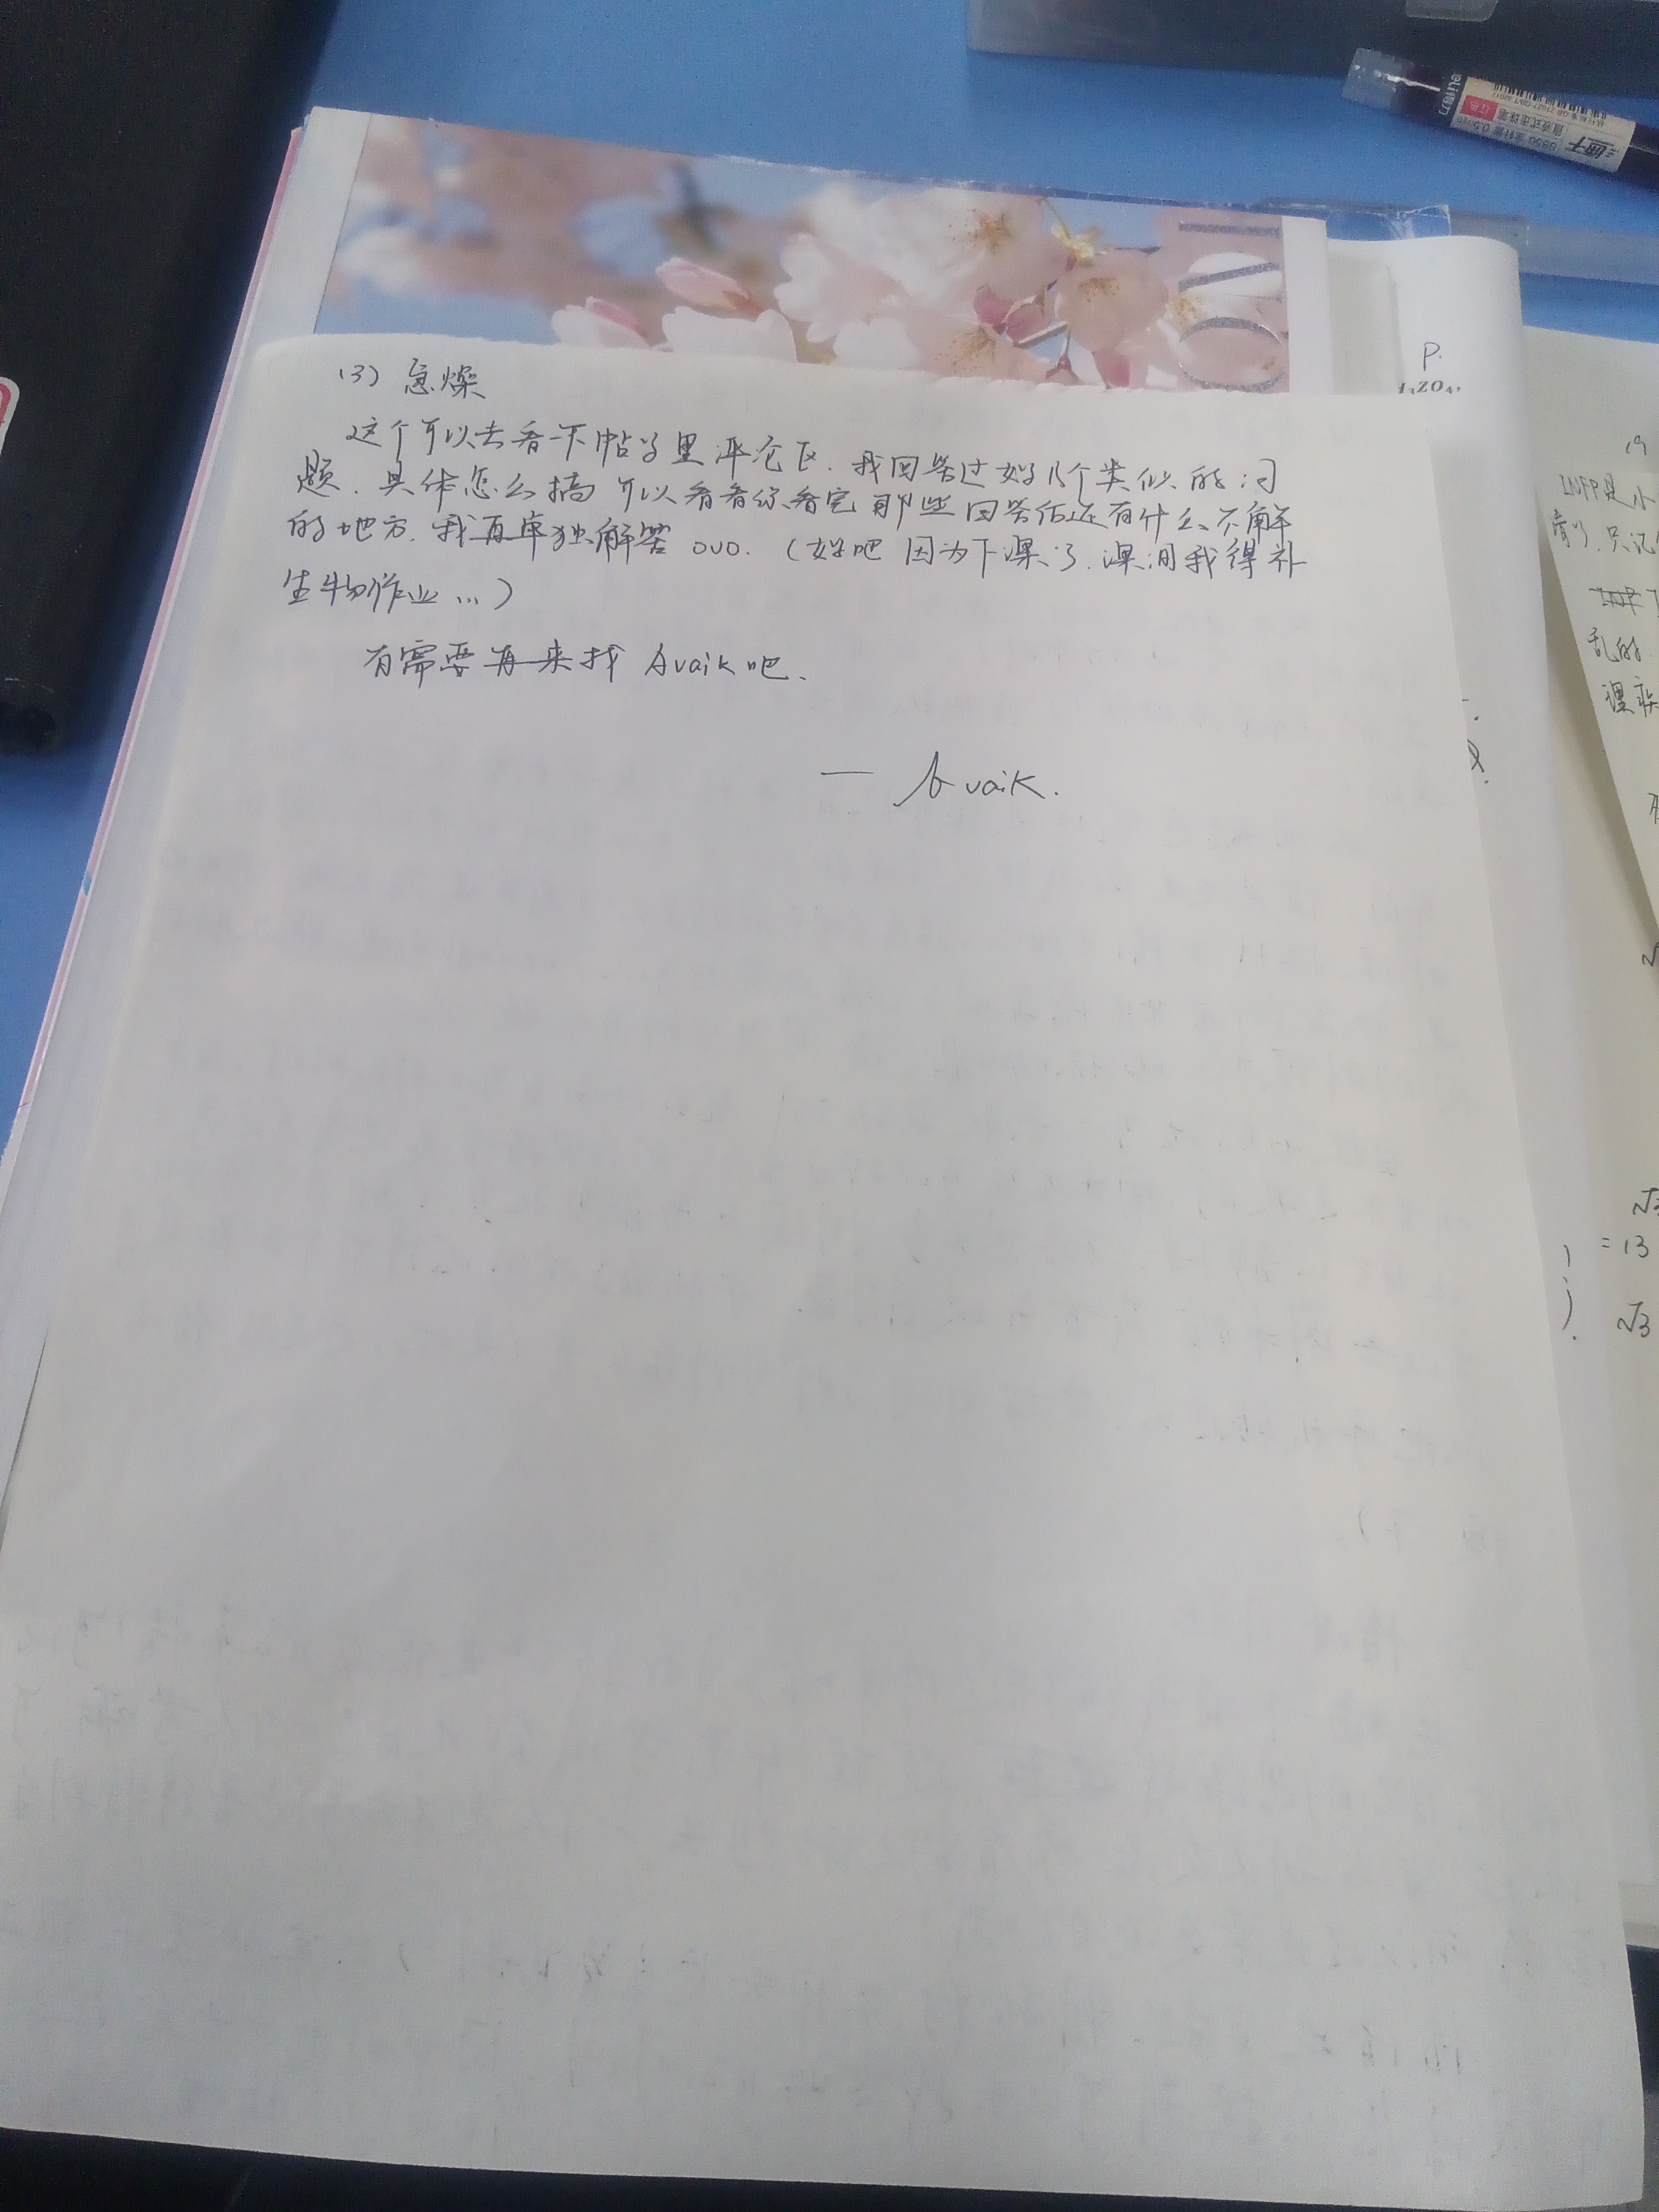 (3) 急燥
这个可以去看一下帖子里评论区. 我回答过好几个类似的问
题. 具体怎么搞 可以看看你看完那些回答后还有什么不解
的地方. 我再单独解答 ovo. (好吧 因为下课了. 课间我得补
生物作业 ...)
有需要再来找 Avaik 吧.
— Avaik.
P.
INFP是小
乱的
= 13
√3